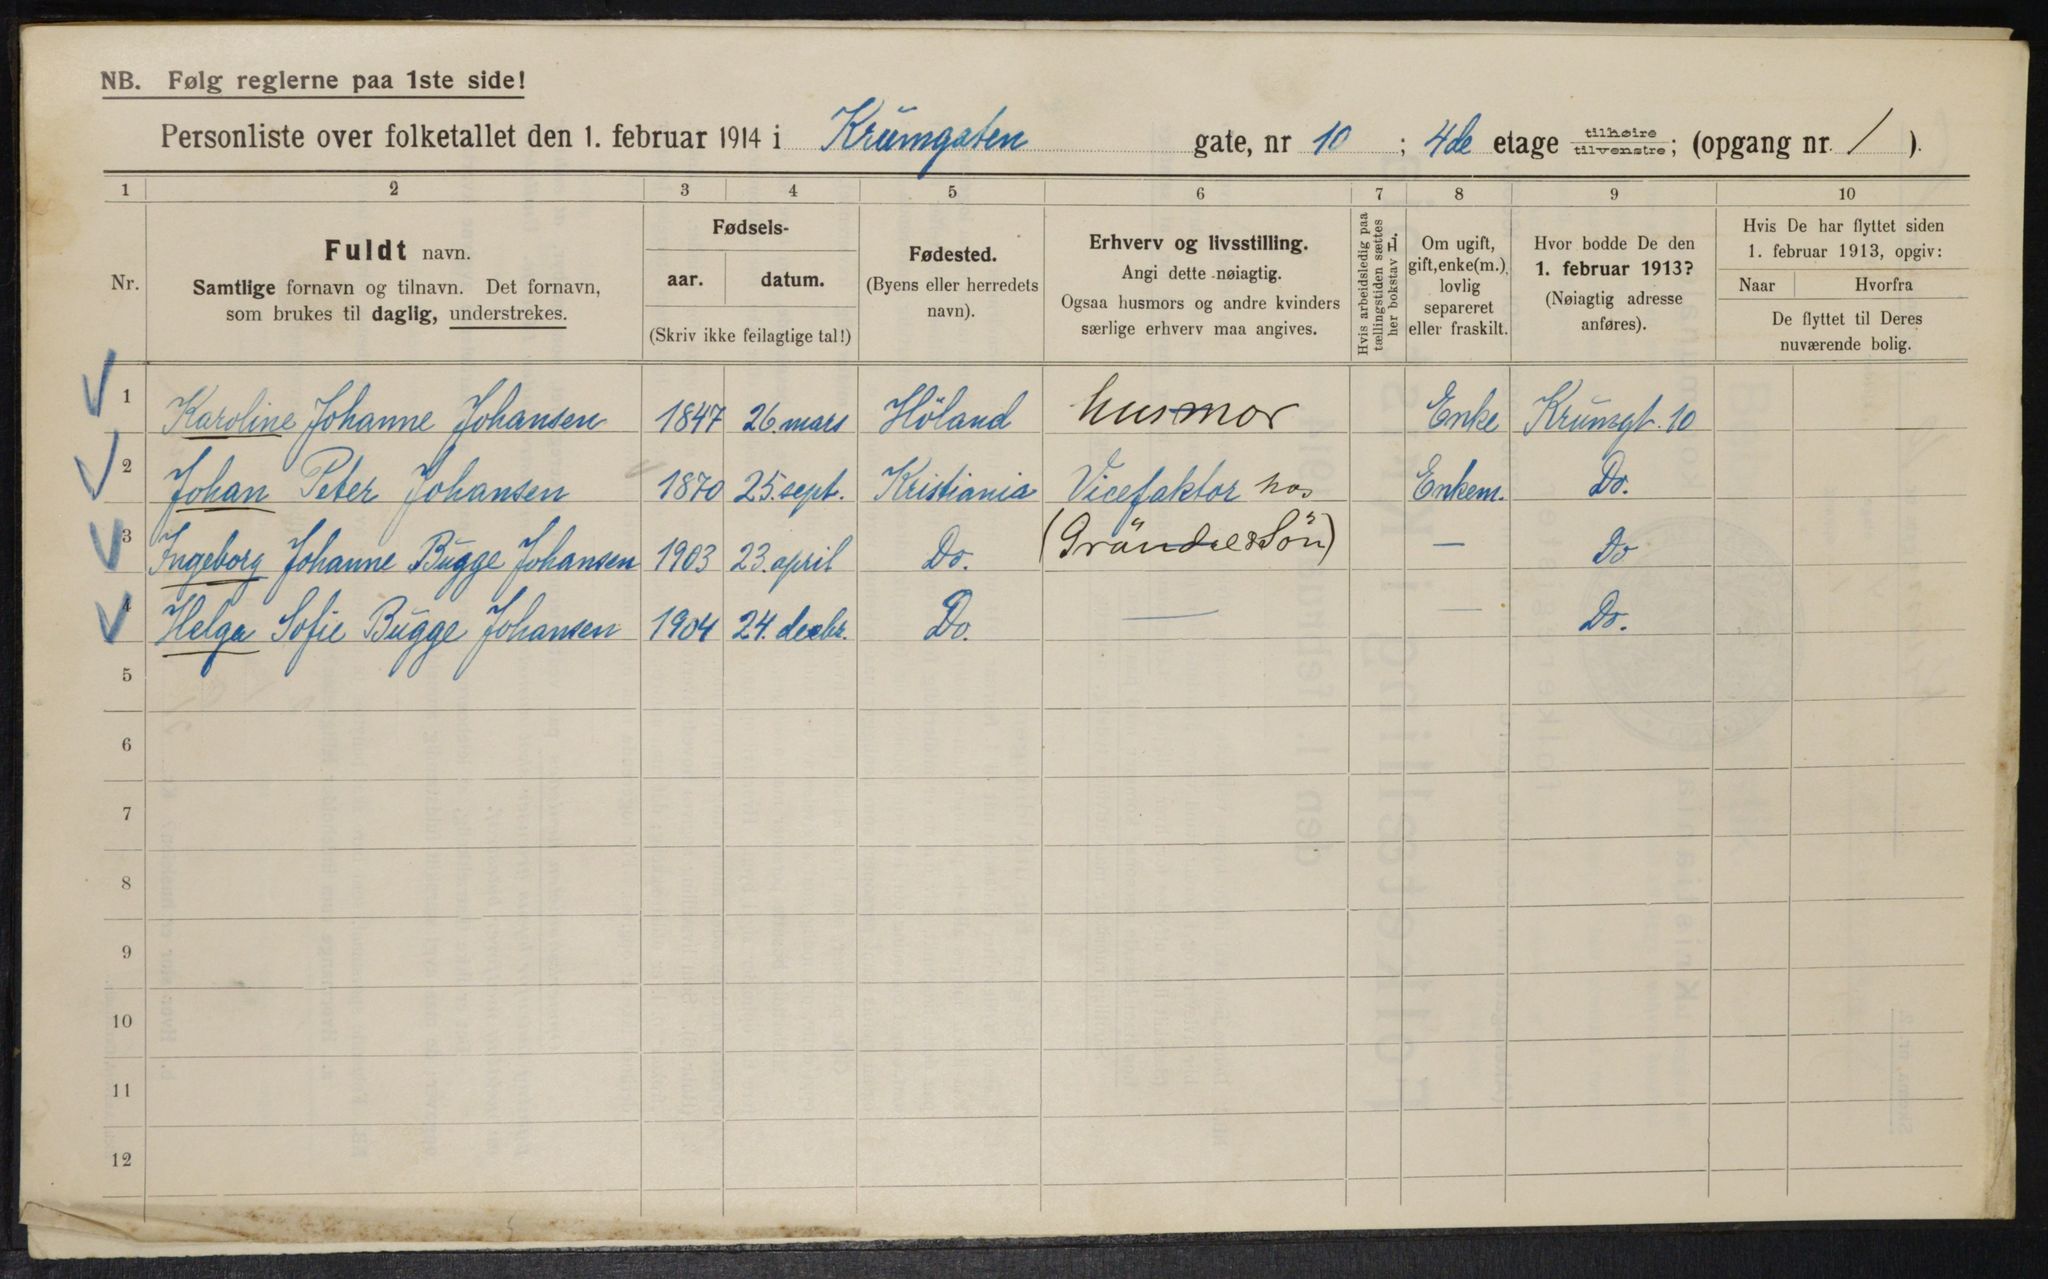 NB. Følg reglerne paa 1ste side!
Personliste over folketallet den 1. februar 1914 i Krumgaten gate, nr 10 ; 4de etage tilhøire tilvenstre; (opgang nr. / ).
1 2 3 4 5 6 7 8 9 10
Nr.
Fuldt navn.
Samtlige fornavn og tilnavn. Det fornavn,
som brukes til daglig, understrekes.
Fødsels-
aar. datum.
(Skriv ikke feilagtige tal!)
Fødested.
(Byens eller herredets
navn).
Erhverv og livsstilling.
Angi dette nøiagtig.
Ogsaa husmors og andre kvinders
særlige erhverv maa angives.
Hvis arbeidsledig paa
tællingstiden sættes
her bokstav L.
Om ugift,
gift, enke(m.),
lovlig
separeret
eller fraskilt.
Hvor bodde De den
1. februar 1913?
(Nøiagtig adresse
anføres).
Hvis De har flyttet siden
1. februar 1913, opgiv:
Naar Hvorfra
De flyttet til Deres
nuværende bolig.
1 Karoline Johanne Johansen 1847 26. mars Höland husmor Enke Krumgt. 10
2 Johan Peter Johansen 1870 25. sept. Kristiania Vicefaktor hos Enkem. Do.
3 Ingeborg Johanne Bugge Johansen 1903 23. april Do. (Gröndal & Sön) — Do
4 Helga Sofie Bugge Johansen 1904 24. decbr. Do. — — Do.
5
6
7
8
9
10
11
12